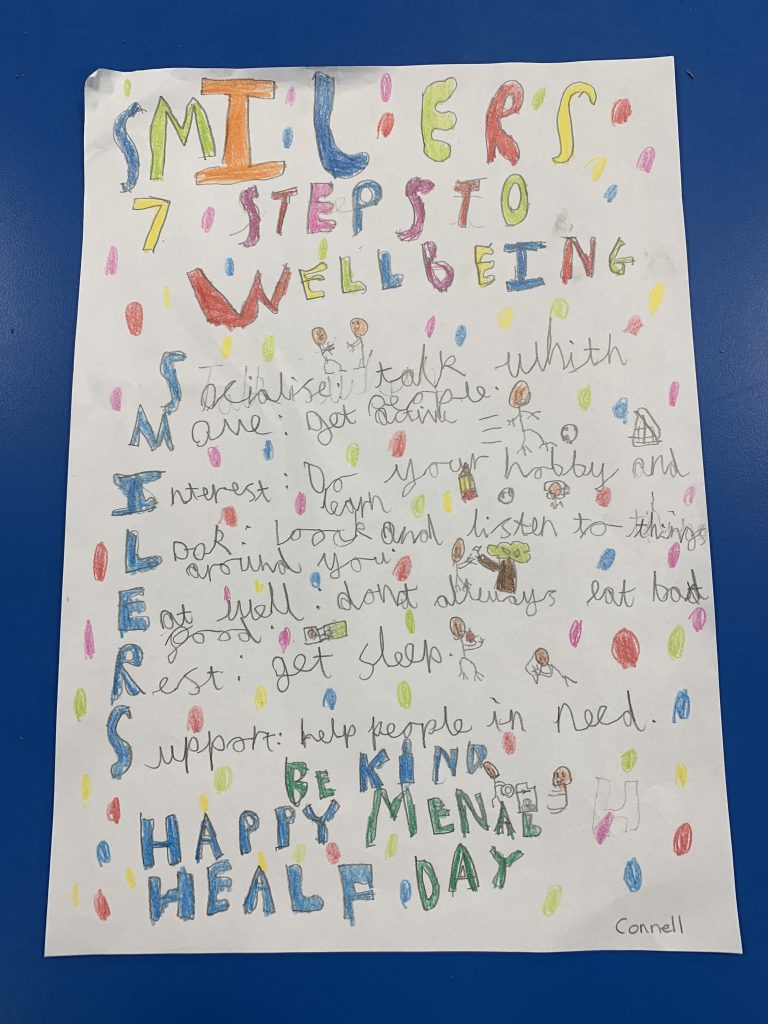 SMILERS
7 STEPS TO
WELLBEING
Socialise: talk whith
people.
Move: get active
Interest: Do your hobby and
learn
Look: loock and listen to things
around you.
Eat well: don't allways eat bad
food.
Rest: get sleep.
Support: help people in need.
BE KIND
HAPPY MENAL
HEALF DAY
H
Connell